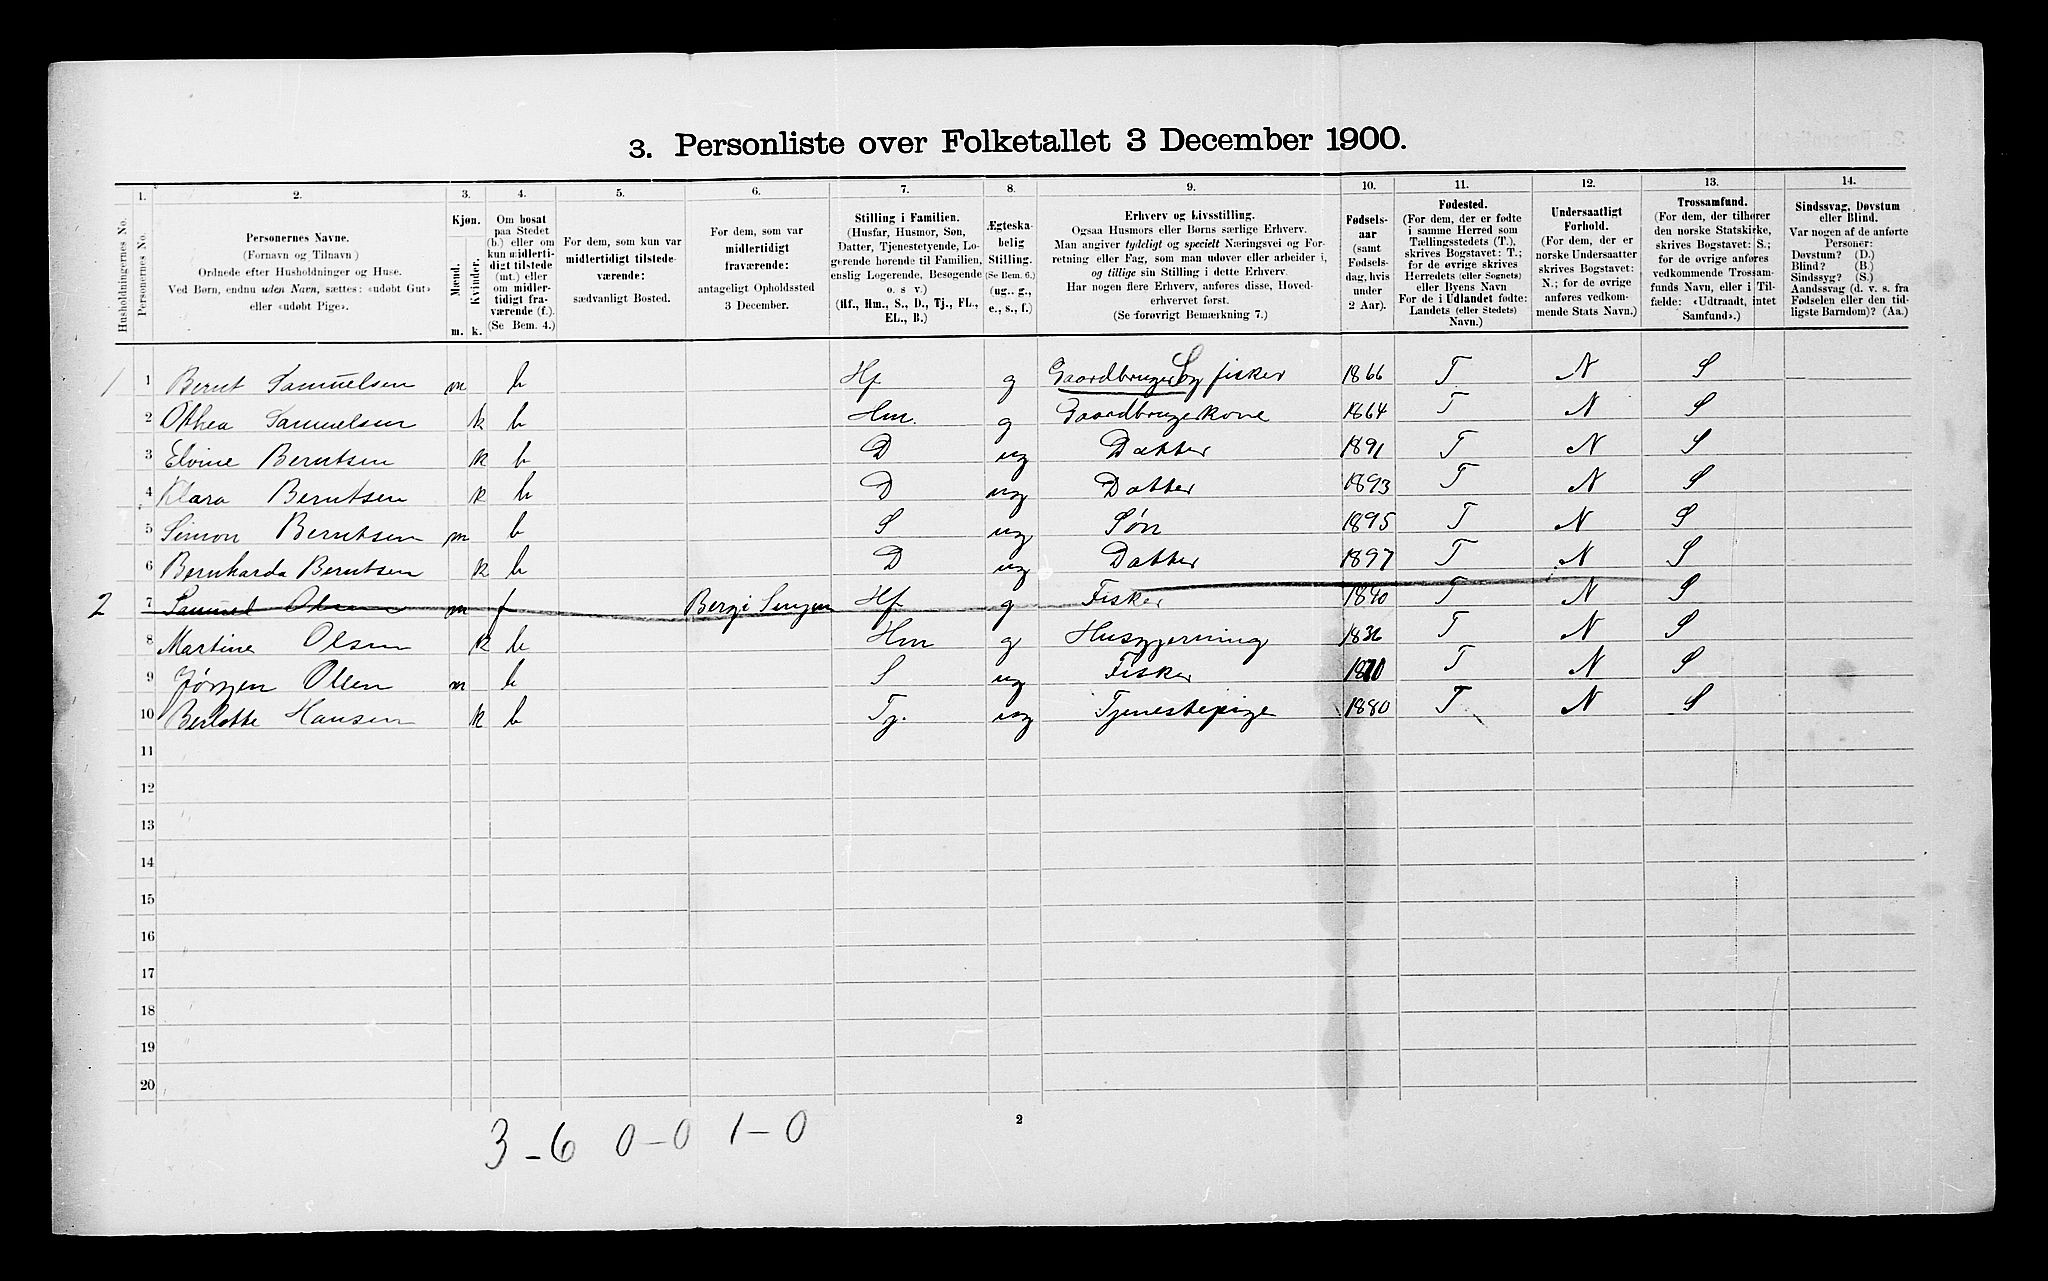 3. Personliste over Folketallet 3 December 1900.
1. 2. 3. 4. 5. 6. 7. 8. 9. 10. 11. 12. 13. 14.
Husholdningernes No.
Personernes No.
Personernes Navne.
(Fornavn og Tilnavn)
Ordnede efter Husholdninger og Huse.
Ved Børn, endnu uden Navn, sættes: «udøbt Gut»
eller «udøbt Pige».
Kjøn.
Mænd.
Kvinder.
m. k.
Om bosat
paa Stedet
(b.) eller om
kun midlerti-
digt tilstede
(mt.) eller
om midler-
tidigt fra-
værende (f.).
(Se Bem. 4.)
For dem, som kun var
midlertidigt tilstede-
værende:
sædvanligt Bosted.
For dem, som var
midlertidigt
fraværende:
antageligt Opholdssted
3 December.
Stilling i Familien.
(Husfar, Husmor, Søn,
Datter, Tjenestetyende, Lo-
gerende hørende til Familien,
enslig Logerende, Besøgende
o. s v.)
(Hf., Hm., S., D., Tj., FL.,
EL., B.)
Ægteska-
belig
Stilling.
(Se Bem. 6.)
(ug., g.,
e., s., f.)
Erhverv og Livsstilling.
Ogsaa Husmors eller Børns særlige Erhverv.
Man angiver tydeligt og specielt Næringsvei og For-
retning eller Fag, som man udøver eller arbeider i,
og tillige sin Stilling i dette Erhverv.
Har nogen flere Erhverv, anføres disse, Hoved-
erhvervet først.
(Se forøvrigt Bemærkning 7.)
Fødsels-
aar
(samt
Fødsels-
dag, hvis
under
2 Aar).
Fødested.
(For dem, der er fødte
i samme Herred som
Tællingsstedets (T.),
skrives Bogstavet: T.;
for de øvrige skrives
Herredets (eller Sognets)
eller Byens Navn
For de i Udlandet fødte:
Landets (eller Stedets)
Navn.)
Undersaatligt
Forhold.
(For dem, der er
norske Undersaatter
skrives Bogstavet:
N.; for de øvrige
anføres vedkom-
mende Stats Navn.)
Trossamfund.
(For dem, der tilhører
den norske Statskirke,
skrives Bogstavet: S.;
for de øvrige anføres
vedkommende Trossam-
funds Navn, eller i Til-
fælde: «Udtraadt, intet
Samfund».)
Sindssvag, Døvstum
eller Blind.
Var nogen af de anførte
Personer:
Døvstum? (D.)
Blind? (B.)
Sindssyg? (S.)
Aandssvag (d. v. s. fra
Fødselen eller den tid-
ligste Barndom)? (Aa.)
1 1 Bernt Samuelsen m b Hf g Gaardbruger S og fisker 1866 T N S
2 Othea Samuelsen k b Hm. g Gaardbrugerkone 1864 T N S
3 Elvine Berntsen k b D ug Datter 1891 T N S
4 Klara Berntsen k b D ug Datter 1893 T N S
5 Simon Berntsen m b S ug Søn 1895 T N S
6 Bernharda Berntsen k b D ug Datter 1897 T N S
2 7 Samuel Olsen m f Bergi Senjen Hf g Fisker 1840 T N S
8 Martine Olsen k b Hm g Husgjerning 1836 T N S
9 Jørgen Olsen m b S ug Fisker 1870 T N S
10 Berlotte Hansen k b Tj. ug Tjenestepige 1880 T N S
11
12
13
14
15
16
17
18
19
20
2
3 - 6 0 - 0 1 - 0